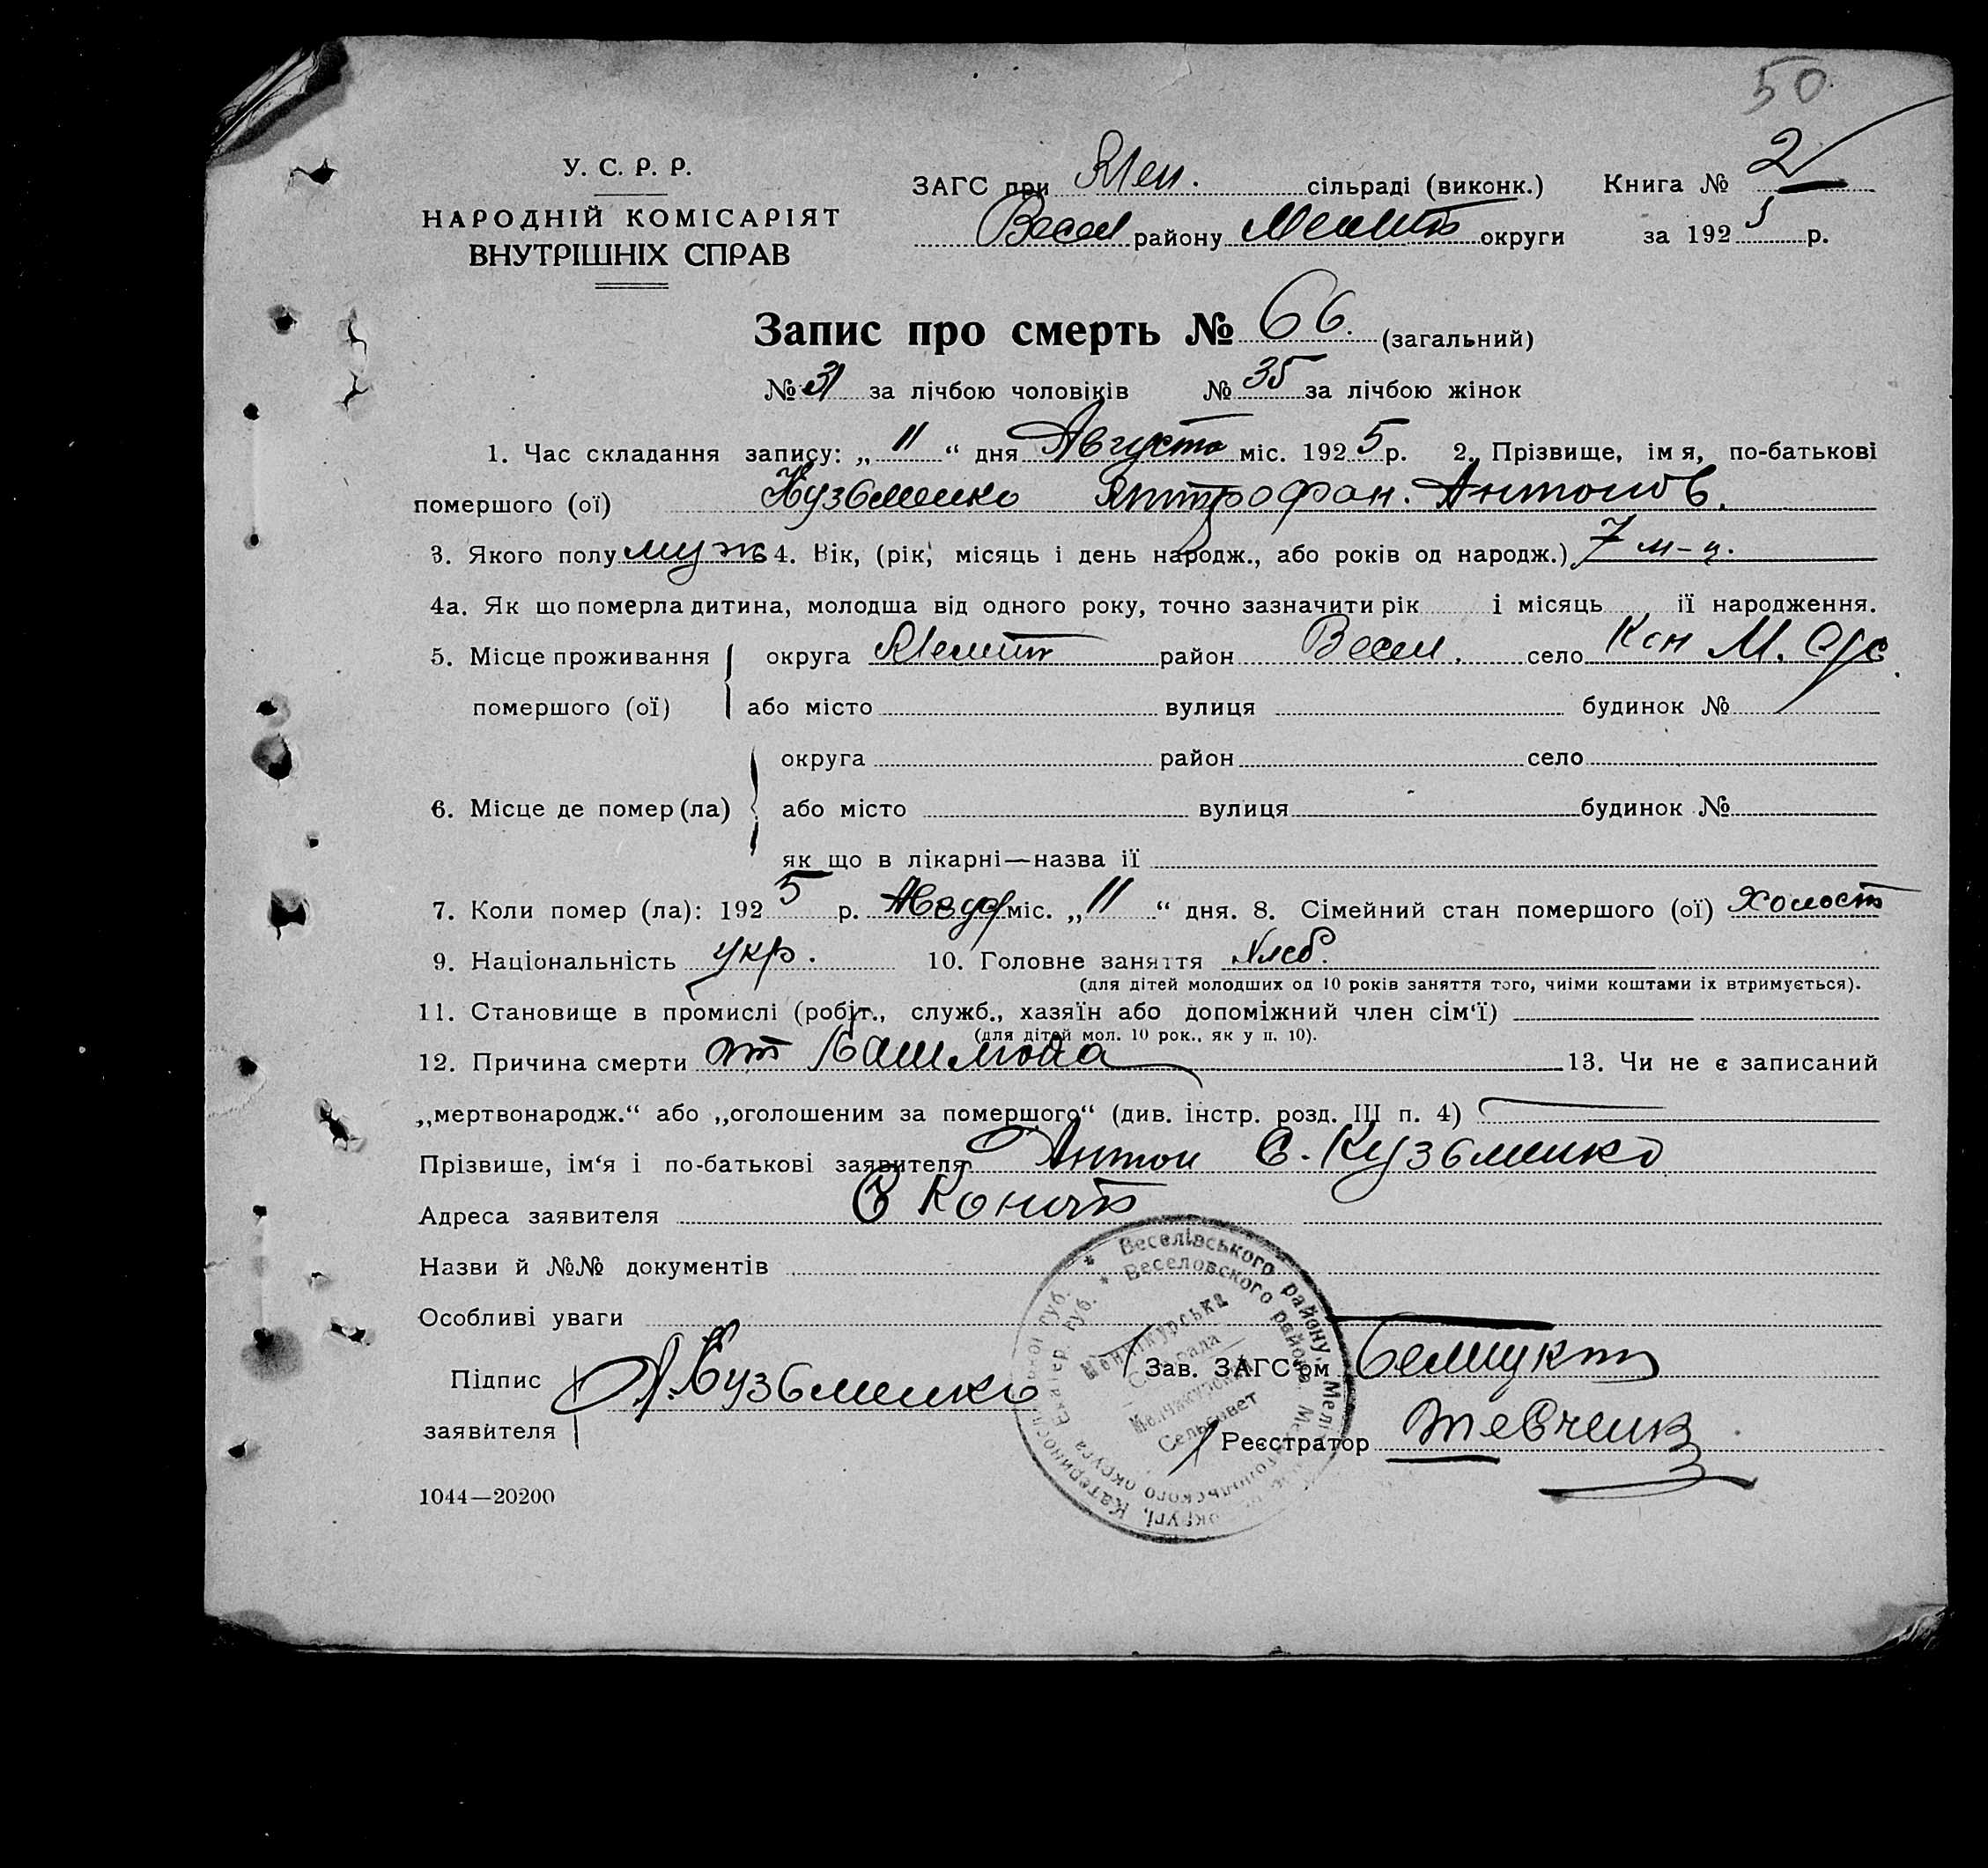 50.
У. С. Р. Р.
НАРОДНІЙ КОМІСАРІЯТ
ВНУТРІШНІХ СПРАВ
ЗАГС при Мен. сільраді (виконк.) Книга № 2
Весел району Мелит округи за 1925 р.
Запис про смерть № 66. (загальний)
№ 31 за лічбою чоловіків № 35 за лічбою жінок
1. Час складання запису: „ 11 “ дня Августа міс. 1925 р. 2. Прізвище, імя, по-батькові
помершого (ої) Кузьменко Митрофан. Антонов.
3. Якого полу муж 4. Вік, (рік, місяць і день народж., або років од народж.) 7 м-ц.
4а. Як що померла дитина, молодща від одного року, точно зазначити рік і місяць її народження.
5. Місце проживання округа Мелит район Весел. село Кон М.
помершого (ої) або місто вулиця будинок №
округа район село
6. Місце де помер (ла) або місто вулиця будинок №
як що в лікарні—назва її
7. Коли помер (ла): 1925 р. Авгус міс. „ 11 “ дня. 8. Сімейний стан помершого (ої) холост
9. Національність укр. 10. Головне заняття хлеб.
(для дітей молодших од 10 років заняття того, чиїми коштами їх втримується).
11. Становище в промислі (робіт., служб., хазяїн або допоміжний член сім‘ї)
(для дітей мол. 10 рок., як у п. 10).
12. Причина смерти от Кашлюка 13. Чи не є записаний
„мертвонародж.“ або „оголошеним за помершого“ (див. інстр. розд. III п. 4)
Прізвише, ім‘я і по-батькові заявителя Антон С. Кузьменко
Адреса заявителя
Назви й №№ документів
Особливі уваги
Підпис А. Кузьменко
заявителя
Зав. ЗАГС‘ом
Реєстратор Шевченко
1044—20200
* Веселівського району, Мел округі, Катеринос губ.
* Веселовского района, Мелитопильского округа Екатер. губ.
Менчікурська
Сільрада
Менчикурский
Сельсовет